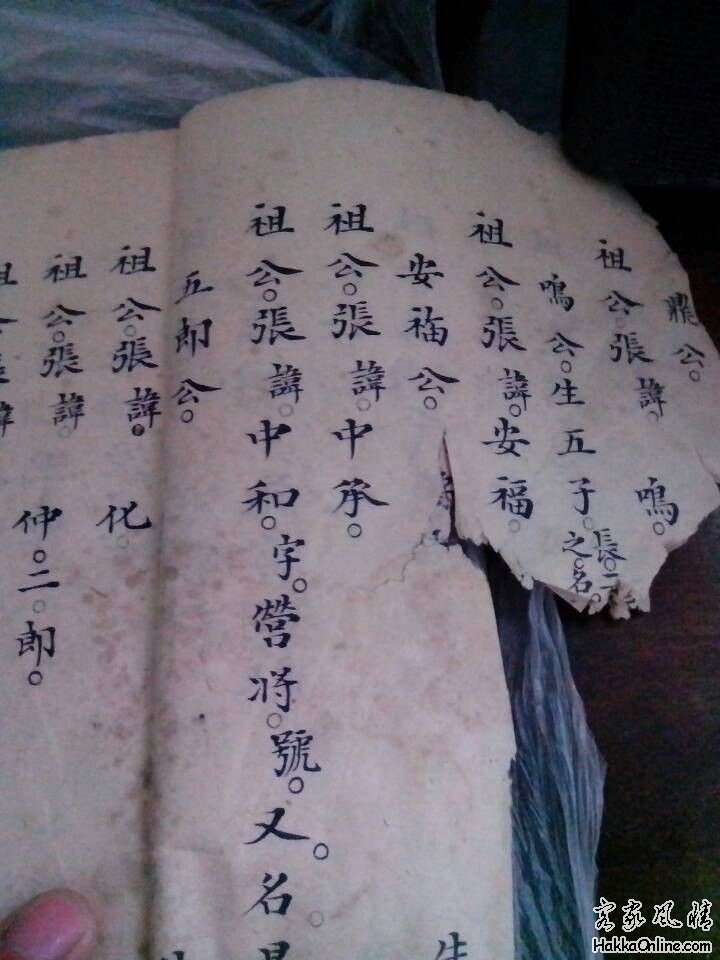 鼎公。
祖公。張諱。鳴。
鳴公。生五子。長。二
之。名。
祖公。張諱。安福。
安福公。
祖公。張諱。中承。
祖公。張諱。中和。字。營将。號。又。名。
五郎公。
祖公。張諱。化。
祖公。張諱。仲。二。郎。
客家風情
HakkaOnline.com